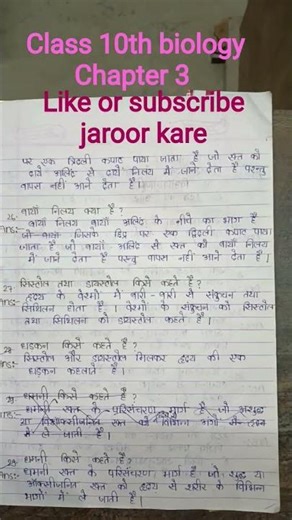 Class 10th biology
Chapter 3
Like or subscribe
jaroor kare
पर एक त्रिदली कपाट पाया जाता है जो रक्त को
दायें अलिंद से दायें निलय में जाने देता है परन्तु
वापस नहीं आने देता है।
26- बायाँ निलय क्या है?
Ans:- बायाँ निलय बायाँ अलिंद के नीचे का भाग है
जिसके छिद्र पर एक द्विदली कपाट पाया
जाता है जो बायाँ अलिंद से रक्त को बायाँ निलय
में जाने देता है परन्तु वापस नहीं आने देता है।
27- सिस्टोल तथा डायस्टोल किसे कहते है?
Ans:- हृदय के वेश्मों में बारी-बारी से संकुचन तथा
शिथिलन होता है। वेश्मों के संकुचन को सिस्टोल
तथा शिथिलन को डायस्टोल कहते है।
28- धड़कन किसे कहते है?
Ans:- सिस्टोल और डायस्टोल मिलकर हृदय की एक
धड़कन कहलाते है।
29- धमनी किसे कहते है?
Ans:- धमनी रक्त के परिसंचरण मार्ग है जो अशुद्ध
या विऑक्सीजनित रक्त को विभिन्न भागो से हृदय
में ले जाती है।
29- धमनी किसे कहते है?
Ans:- धमनी रक्त के परिसंचरण मार्ग है जो शुद्ध या
ऑक्सीजनित रक्त को हृदय से शरीर के विभिन्न
भागों में ले जाती है।